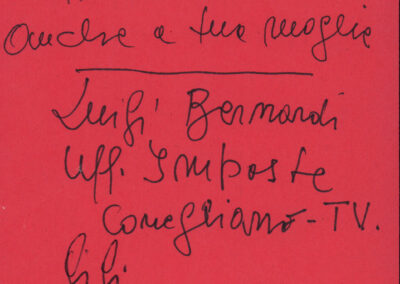 anche a tua moglie
Luigi Bernardi
Uff. Imposte
Conegliano - TV.